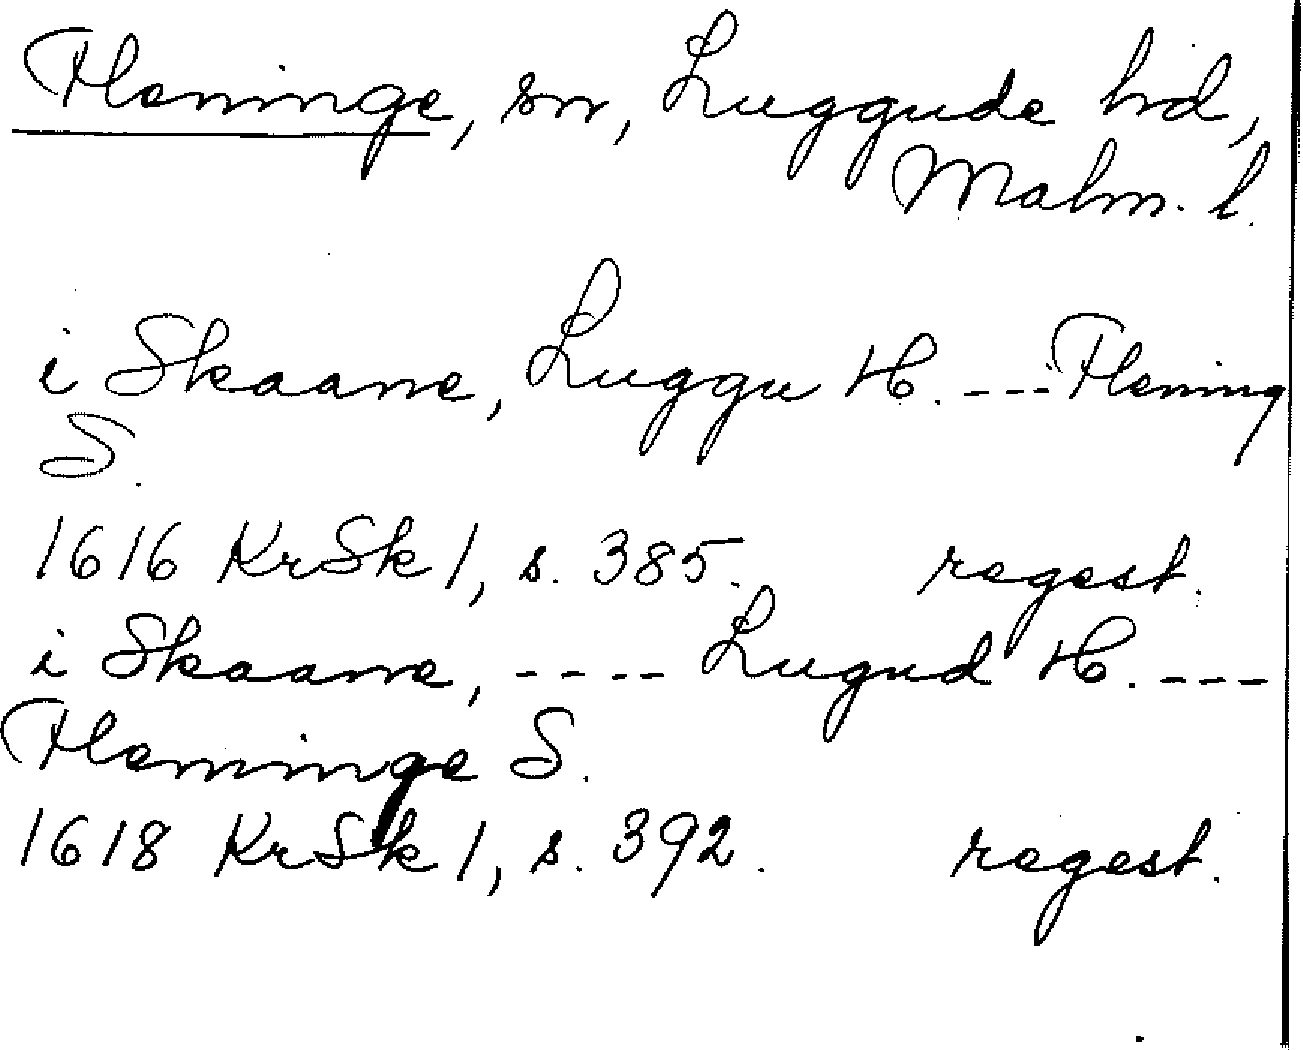 Fleninge, sn, Luggude hd,
Malm. l.
i Skaane, Luggu H. --- Flening
S.
1616 KrSk 1, s. 385. regest.
i Skaane, ---- Lugud H. ---
Fleninge S.
1618 KrSk 1, s. 392. regest.